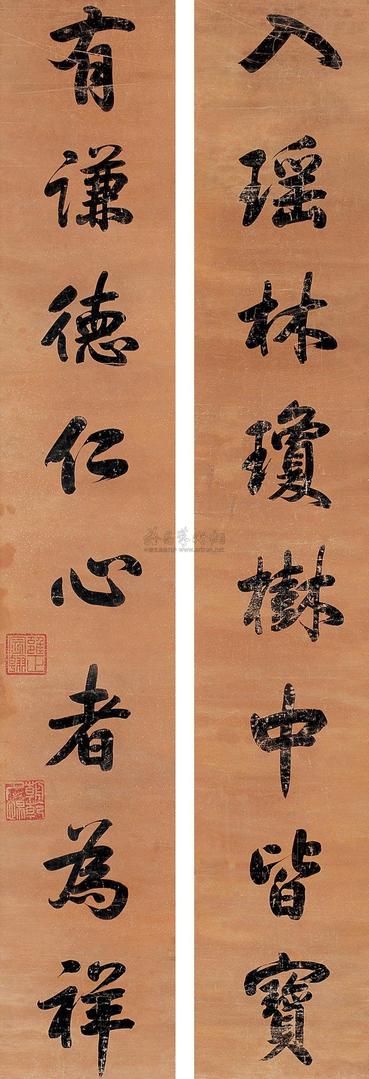 入瑶林瓊樹中皆寶
有谦德仁心者為祥
雍正宸翰
www.artron.net